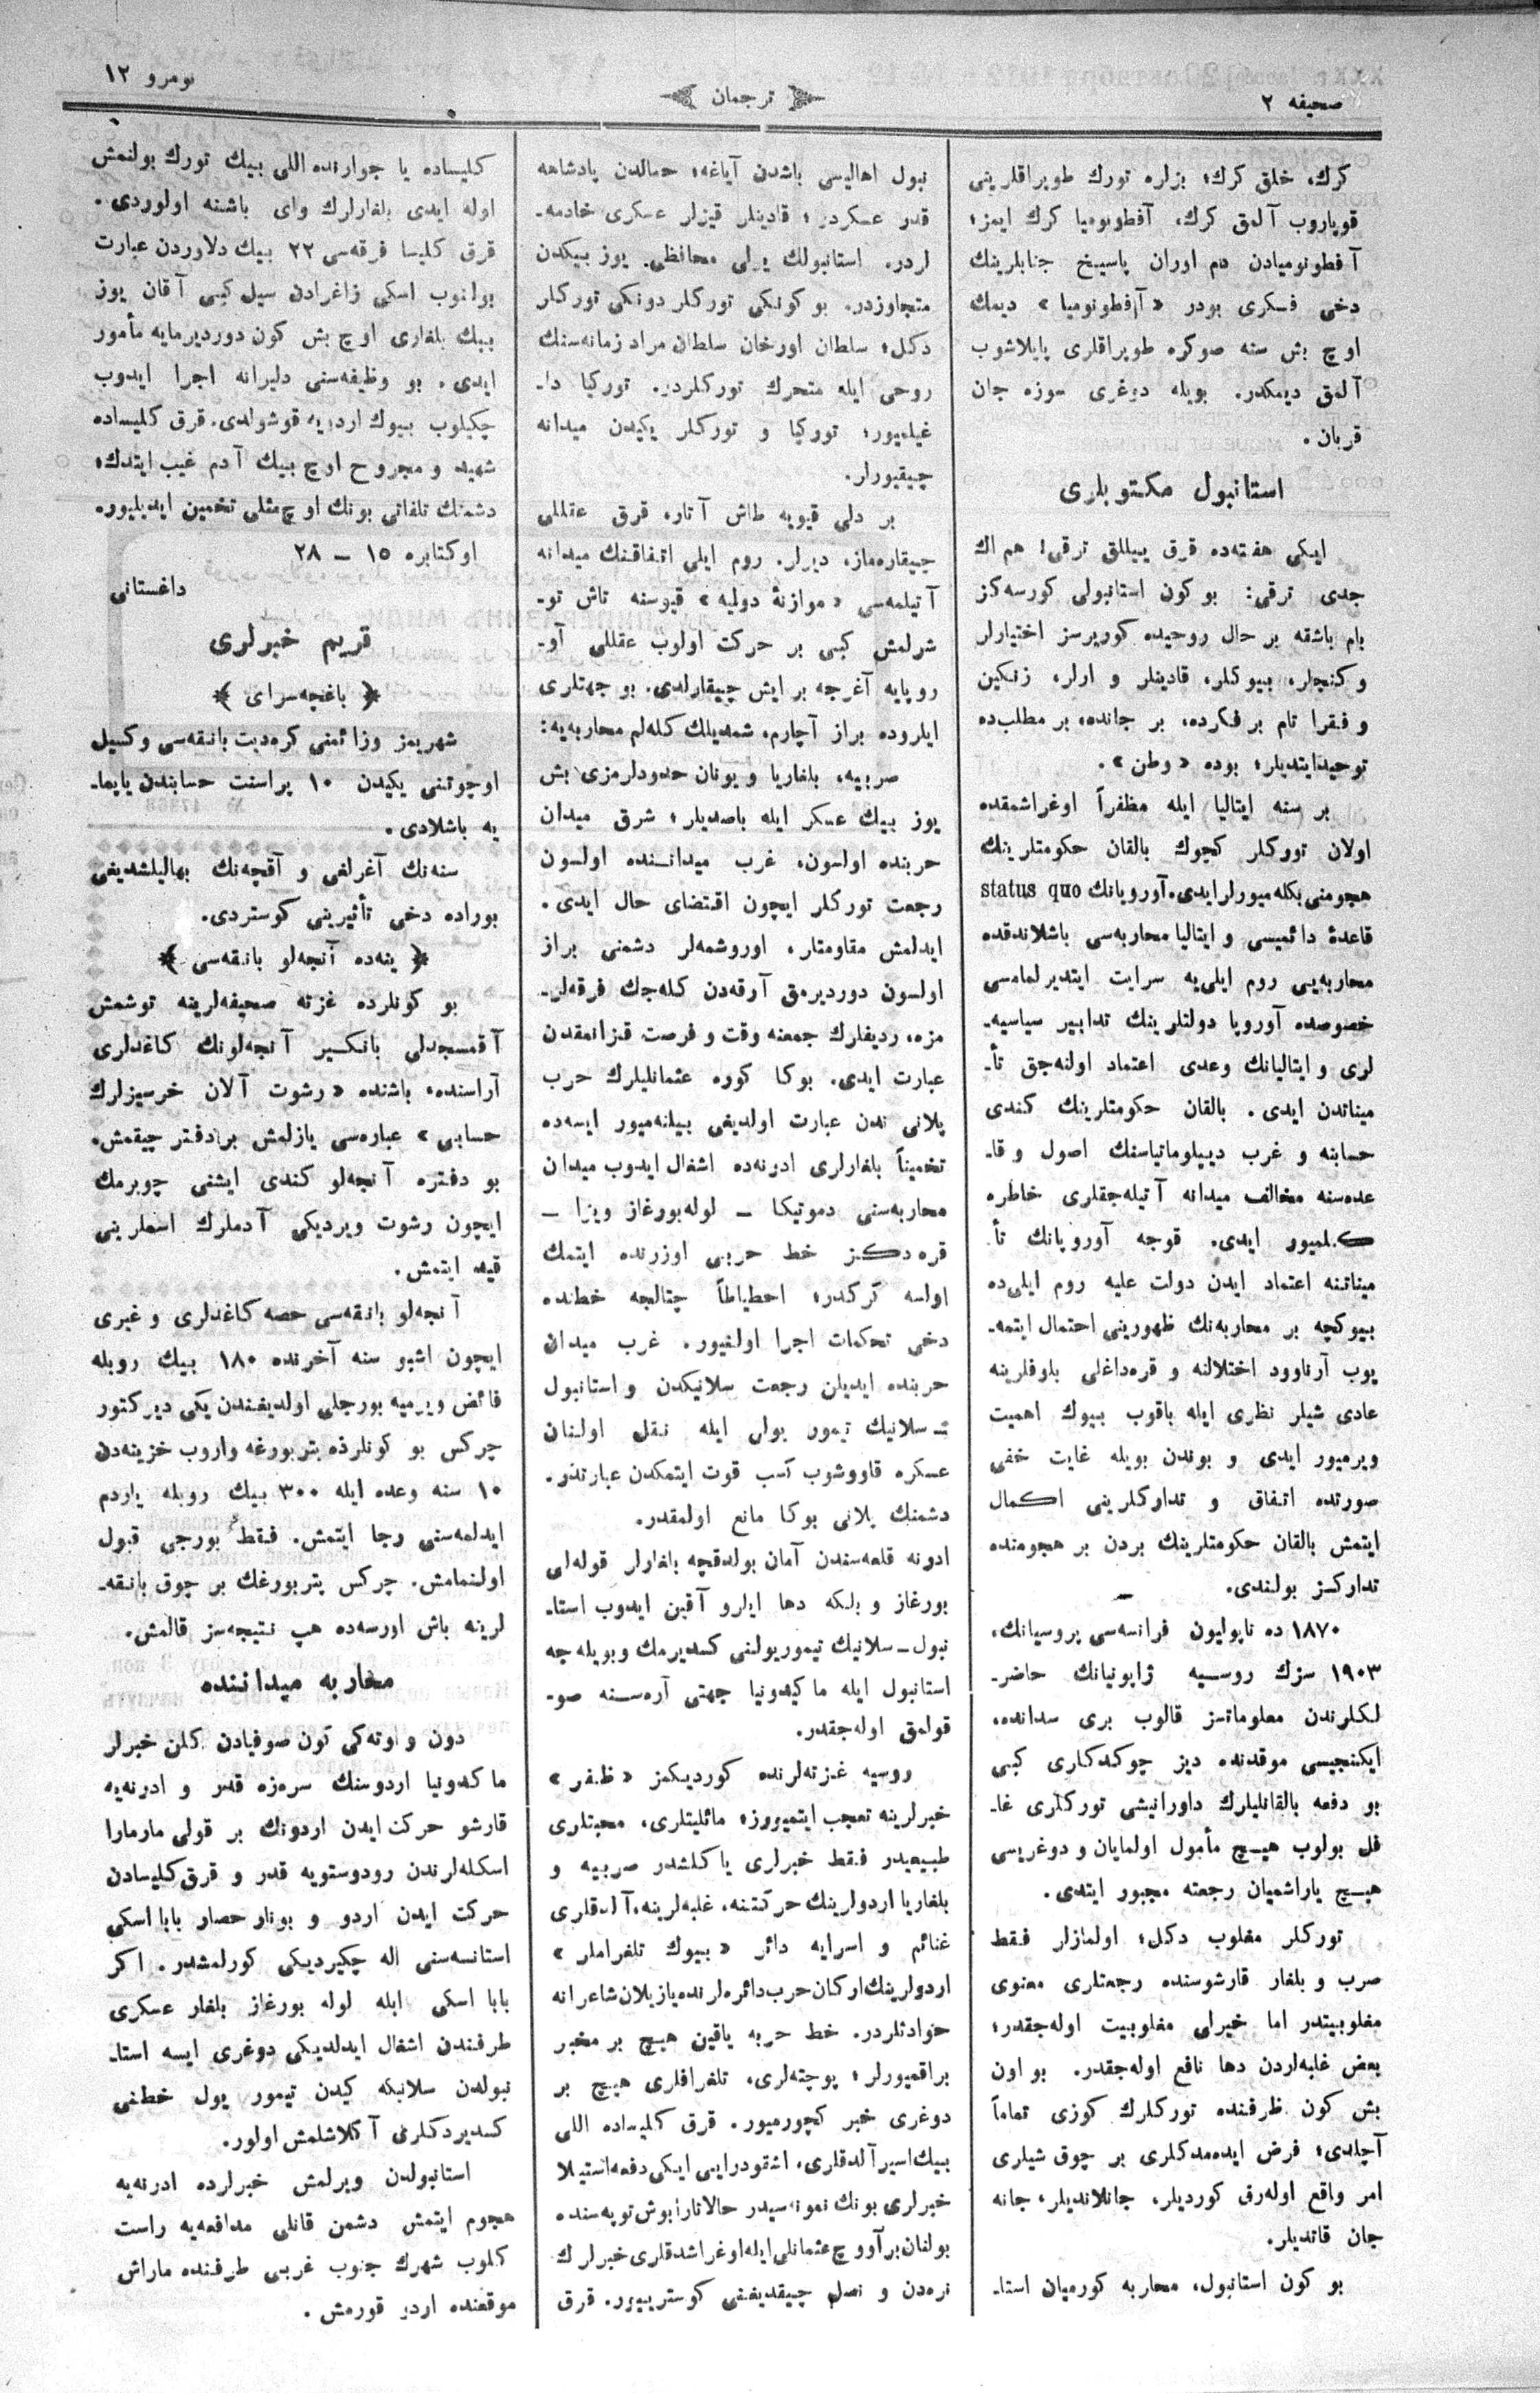 صحیفه ۲
ترجمان
نومرو ۱۲
كرك، خلق كرك؛ بزلره تورك طوپراقلرینی
قوپاروب آلمق كرك، آفطونومیا كرك ایمز؛
آفطونومیادن دم اوران پاسیخ جنابلرینك
دخی فسكری بودر «آفطونومیا» دیمك
اوچ بش سنه صوكره طوپراقلری پایلاشوب
آلمق دیمكدر. بویله دوغری سوزه جان
قربان.
استانبول مكتوبلری
ایكی هفته‌ده قرق ییللق ترقی! هم اك
جدی ترقی: بو كون استانبولی كورسه‌كز
بام باشقه بر حال روحیده كوررسز اختیارلر
و كنجلر، بیوكلر، قادینلر و ارلر، زنكین
و فقرا تام بر فكرده، بر جانده، بر مطلب‌ده
توحیدایتدیلر؛ بوده «وطن».
بر سنه ایتالیا ایله مظفراً اوغراشمقده
اولان توركلر كچوك بالقان حكومتلرینك
هجومنی بكله‌میورلر ایدی. آوروپانك status quo
قاعدهٔ دائمیسی و ایتالیا محاربه‌سی باشلاندقده
محاربه‌یی روم ایلی‌یه سرایت ایتدیرلمامسی
خصوصده آوروپا دولتلرینك تدابیر سیاسیه‌ـ
لری و ایتالیانك وعدی اعتماد اولنه‌جق تأـ
میناتدن ایدی. بالقان حكومتلرینك كندی
حسابنه و غرب دیپلوماتیاسنك اصول و قاـ
عده‌سنه مخالف میدانه آتیله‌جقلری خاطره
كلمیور ایدی. قوجه آوروپانك تأـ
میناتنه اعتماد ایدن دولت علیه روم ایلی‌ده
بیوكچه بر محاربه‌نك ظهورینی احتمال ایتمه‌ـ
یوب آرناوود اختلالنه و قره‌داغلی بلوفلرینه
عادی شیلر نظری ایله باقوب بیوك اهمیت
ویرمیور ایدی و بوندن بویله غایت خفی
صورتده اتفاق و تداركلرینی اكمال
ایتمش بالقان حكومتلرینك بردن بر هجومنده
تداركسز بولندی.
۱۸۷۰ ده ناپولیون فرانسه‌سی پروسیانك،
۱۹۰۳ سزك روسیه ژاپونیانك حاضرـ
لكلرندن معلوماتسز قالوب بری سدانده،
ایكنجیسی موقدنده دیز چوكدكاری كبی
بو دفعه بالقانلیلرك داورانیشی توركلری غاـ
فل بولوب هیچ مأمول اولمایان و دوغریسی
هیچ یاراشمیان رجعته مجبور ایتدی.
توركلر مغلوب دكل؛ اولمازلر فقط
صرب و بلغار قارشوسنده رجعتلری معنوی
مغلوبیتدر اما خیرلی مغلوبیت اوله‌جقدر؛
بعض غلبه‌لردن دها نافع اوله‌جقدر. بو اون
بش كون ظرفنده توركلرك كوزی تماماً
آچلدی؛ فرض ایده‌مدكلری بر چوق شیلری
امر واقع اوله‌رق كوردیلر، جانلاندیلر، جانه
جان قاتدیلر.
بو كون استانبول، محاربه كورمیان استاـ
نبول اهالیسی باشدن آیاغه، حمالدن پادشاهه
قدر عسكردر؛ قادینلر قیزلر عسكری خادمه‌ـ
لردر. استانبولك یرلی محافظی یوز بیكدن
متجاوزدر. بو كونكی توركلر دونكی توركلر
دكل؛ سلطان اورخان سلطان مراد زمانه‌سنك
روحی ایله متحرك توركلردر. توركیا داـ
غیلمیور؛ توركیا و توركلر یكیدن میدانه
چیقیورلر.
بر دلی قیویه طاش آتار، قرق عقللی
چیقاره‌ماز، دیرلر. روم ایلی اتفاقنك میدانه
آتیلمه‌سی «موازنهٔ دولیه» قیوسنه تاش توـ
شرلمش كبی بر حركت اولوب عقللی آوـ
روپایه آغرجه بر ایش چیقارلدی. بو جهتلری
ایلروده براز آچارم، شمدیلك كله‌لم محاربه‌یه:
صربیه، بلغاریا و یونان حدودلرمزی بش
یوز بیك عسكر ایله باصدیلر؛ شرق میدان
حربنده اولسون، غرب میداننده اولسون
رجعت توركلر ایچون اقتضای حال ایدی.
ایدلمش مقاومتلر، اوروشمه‌لر دشمنی براز
اولسون دوردیرمق آرقه‌دن كله‌جك فرقه‌لرـ
مزه، ردیفلرك جمعنه وقت و فرصت قزانمقدن
عبارت ایدی. بوكا كوره عثمانلیلرك حرب
پلانی ندن عبارت اولدیغی بیلنه‌میور ایسه‌ده
تخمیناً بلغارلری ادرنه‌ده اشغال ایدوب میدان
محاربه‌سنی دموتیكا ـ لوله‌بورغاز ویزا ـ
قره دكز خط حربی اوزرنده ایتمك
اولسه كركدر؛ احتیاطاً چتالجه خطنده
دخی تحكمات اجرا اولنیور. غرب میدان
حربنده ایدیلن رجعت سلانیكدن و استانبول
ـ سلانیك تیمور یولی ایله نقل اولنان
عسكره قاووشوب كسب قوت ایتمكدن عبارتدر.
دشمنك پلانی بوكا مانع اولمقدر.
ادرنه قلعه‌سندن آمان بولدقچه بلغارلر قوله‌لی
بورغاز و بلكه دها ایلرو آقین ایدوب استاـ
نبول ـ سلانیك تیموریولنی كسدیرمك و بویله‌جه
استانبول ایله ماكدونیا جهتی آره‌سنه صوـ
قولمق اوله‌جقدر.
روسیه غزته‌لرنده كوردیكمز «ظفر»
خبرلرینه تعجب ایتمیورز؛ مائلیتلری، محبتلری
طبیعیدر فقط خبرلری یاكلشدر صربیه و
بلغاریا اردولرینك حركتنه، غلبه‌لرینه، آلدقلری
غنائم و اسرایه دائر «بیوك تلغراملر»
اردولرینك اركان حرب دائره‌لرنده یازیلان شاعرانه
حوادثلردر. خط حربه یاقین هیچ بر مخبر
براقمیورلر؛ پوچته‌لری، تلغرافلری هیچ بر
دوغری خبر كچورمیور. قرق كلیساده اللی
بیك اسیر آلدقلری، اشقودرایی ایكی دفعه استیلا
خبرلری بونك نمونه‌سیدر حالا تارابوش توپه‌سنده
بولنان بر آووچ عثمانلی ایله اوغراشدقلری خبرلرك
نره‌دن و نصل چیقدیغنی كوستریور. قرق
كلیساده یا جوارنده اللی بیك تورك بولنمش
اوله ایدی بلغارلرك وای باشنه اولوردی.
قرق كلیسا فرقه‌سی ۲۲ بیك دلاوردن عبارت
بولنوب اسكی زاغرادن سیل كبی آقان یوز
بیك بلغاری اوچ بش كون دوردیرمایه مأمور
ایدی. بو وظیفه‌سنی دلیرانه اجرا ایدوب
چكیلوب بیوك اردویه قوشولدی. قرق كلیساده
شهید و مجروح اوچ بیك آدم غیب ایتدك؛
دشمنك تلفاتی بونك اوچ مثلی تخمین ایدیلیور.
اوكتابره ۱۵ ـ ۲۸
داغستانی
قریم خبرلری
﴿ باغچه‌سرای ﴾
شهریمز وزائمنی كره‌دیت بانقه‌سی وكسیل
اوچوتنی یكیدن ۱۰ پراسنت حسابندن یاپماـ
یه باشلادی.
سنه‌نك آغرلغی و آقچه‌نك بهالیلشدیغی
بوراده دخی تأثیرینی كوستردی.
﴿ ینه‌ده آنجه‌لو بانقه‌سی ﴾
بو كونلرده غزته صحیفه‌لرینه توشمش
آقمسجدلی بانكیر آنجه‌لونك كاغدلری
آراسنده، باشنده «رشوت آلان خرسیزلرك
حسابی» عباره‌سی یازلمش بر دفتر چیقمش.
بو دفتره آنجه‌لو كندی ایشنی چویرمك
ایچون رشوت ویردیكی آدملرك اسملرینی
قید ایتمش.
آنجه‌لو بانقه‌سی حصه كاغدلری و غیری
ایچون اشبو سنه آخرنده ۱۸۰ بیك روبله
فائض ویرمیه بورجلی اولدیغندن یكی دیركتور
چركس بو كونلرده پتربورغه واروب خزینه‌دن
۱۰ سنه وعده ایله ۳۰۰ بیك روبله یاردم
ایدلمه‌سنی رجا ایتمش. فقط بورجی قبول
اولنمامش. چركس پتربورغك بر چوق بانقه‌ـ
لرینه باش اورسه‌ده هپ نتیجه‌سز قالمش.
محاربه میداننده
دون و اوته‌كی كون صوفیادن كلن خبرلر
ماكدونیا اردوسنك سره‌زه قدر و ادرنه‌یه
قارشو حركت ایدن اردونك بر قولی مارمارا
اسكله‌لرندن رودوستویه قدر و قرق كلیسادن
حركت ایدن اردو و بونار حصار بابا اسكی
استانسه‌سنی اله چكیردیكی كورلمشدر. اكر
بابا اسكی ایله لوله بورغاز بلغار عسكری
طرفندن اشغال ایدلدیكی دوغری ایسه استاـ
نبولدن سلانیكه كیدن تیمور یول خطنی
كسدیردكلری آكلاشلمش اولور.
استانبولدن ویرلمش خبرلرده ادرنه‌یه
هجوم ایتمش دشمن قانلی مدافعه‌یه راست
كلوب شهرك جنوب غربی طرفنده ماراش
موقعنده اردو قورمش.